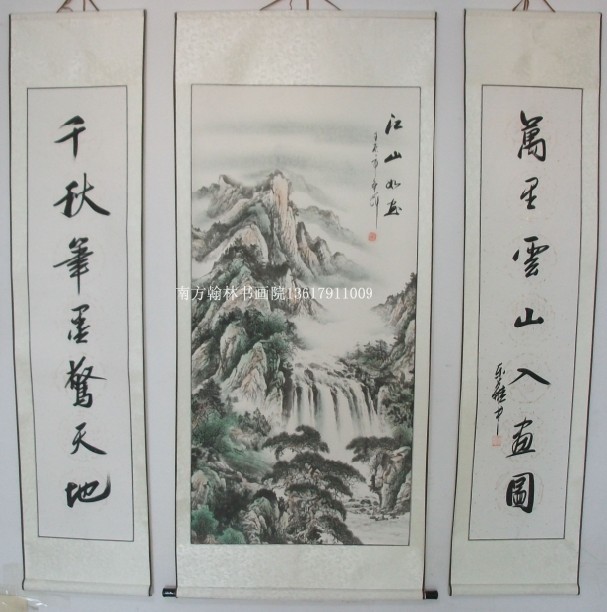 萬里雲山入畫圖
千秋筆墨驚天地
江山如画
南方翰林书画院13617911009